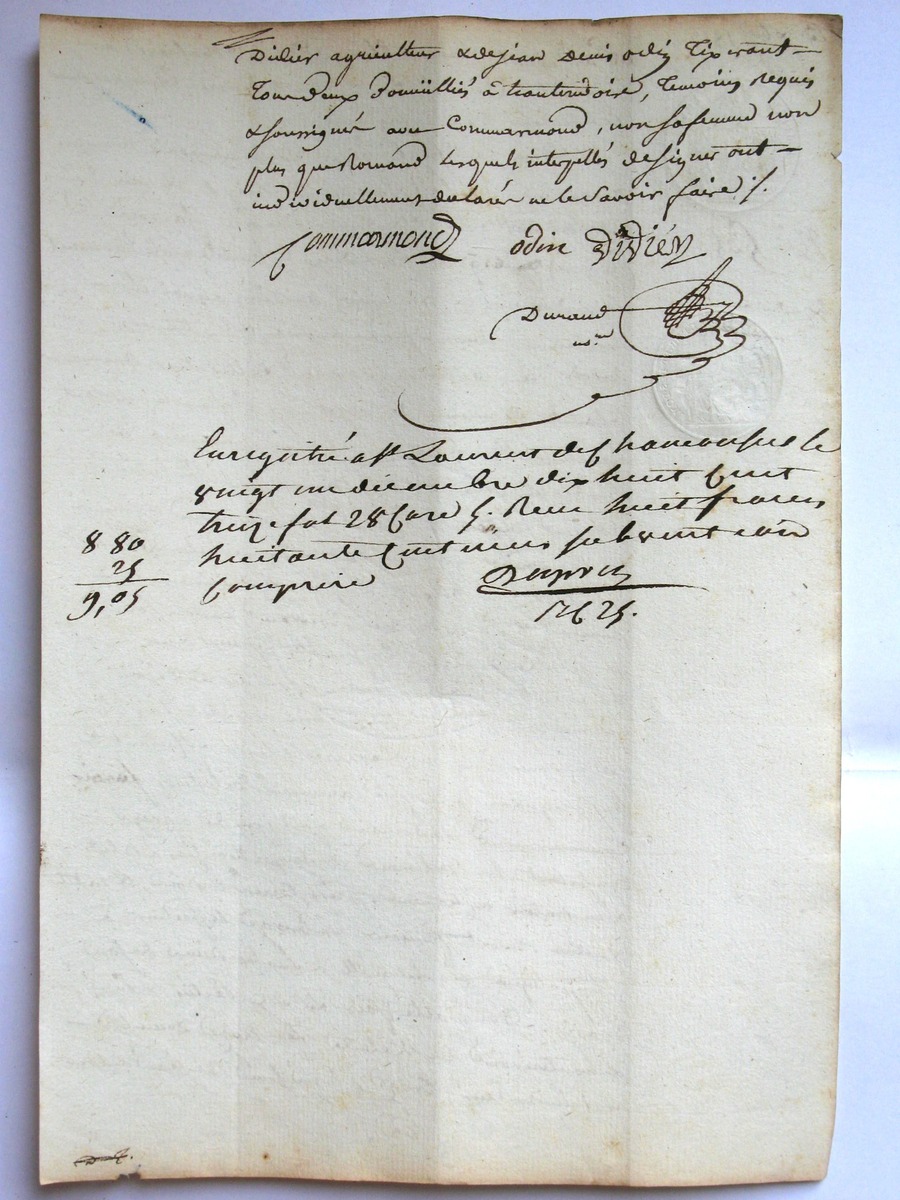 Didier agriculteur & de jean denis odin Tixerant
Tous deux Domiciliés à hauterivoire, Temoins Requis
& soussignés avec Commarmond, non sa femme non
plus que Romand lesquels interpellés de signer ont
individuellement declarés ne le savoir faire ./.
Commarmond odin Didiér
Durand
no.re
Enregistré a st Laurent de Chamousset le
vingt un decembre dix huit Cent
treize fol 28 Case 5. Reçu huit francs
8 80 huitante Centimes subvention
25 Comprise
9,05